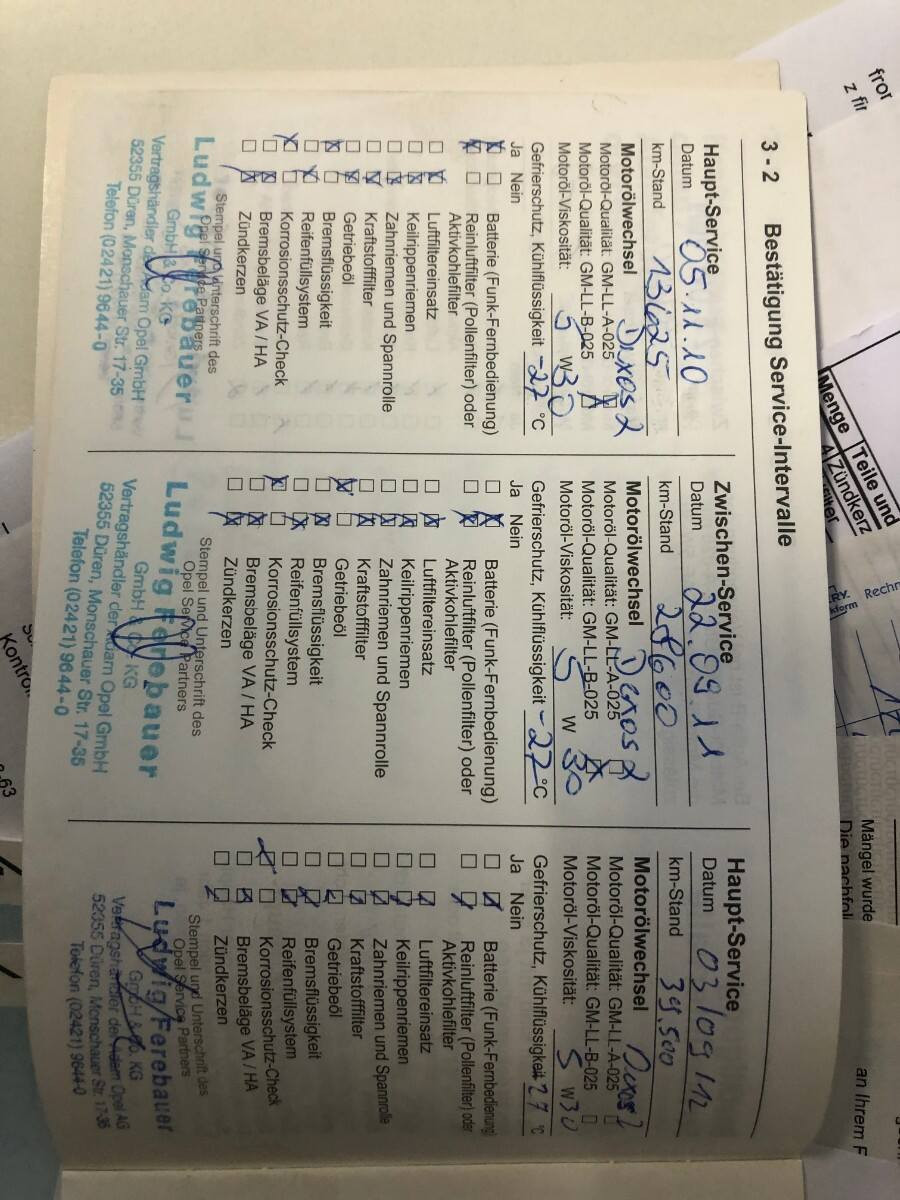 3 - 2 Bestätigung Service-Intervalle
Haupt-Service
Datum 05.11.10
km-Stand 13625
Motorölwechsel Dexos 2
Motoröl-Qualität: GM-LL-A-025
Motoröl-Qualität: GM-LL-B-025
Motoröl-Viskosität: 5 W 30
Gefrierschutz, Kühlflüssigkeit -27 °C
Ja Nein
Batterie (Funk-Fernbedienung)
Reinluftfilter (Pollenfilter) oder
Aktivkohlefilter
Luftfiltereinsatz
Keilrippenriemen
Zahnriemen und Spannrolle
Kraftstofffilter
Getriebeöl
Bremsflüssigkeit
Reifenfüllsystem
Korrosionsschutz-Check
Bremsbeläge VA / HA
Zündkerzen
Stempel und Unterschrift des
Opel Service Partners
Ludwig Ferebauer
GmbH & Co. KG
Vertragshändler der Adam Opel GmbH
52355 Düren, Monschauer Str. 17-35
Telefon (02421) 9644-0
Zwischen-Service
Datum 22.09.11
km-Stand 28600
Motorölwechsel Dexos 2
Motoröl-Qualität: GM-LL-A-025
Motoröl-Qualität: GM-LL-B-025
Motoröl-Viskosität: 5 W 30
Gefrierschutz, Kühlflüssigkeit -27 °C
Ja Nein
Batterie (Funk-Fernbedienung)
Reinluftfilter (Pollenfilter) oder
Aktivkohlefilter
Luftfiltereinsatz
Keilrippenriemen
Zahnriemen und Spannrolle
Kraftstofffilter
Getriebeöl
Bremsflüssigkeit
Reifenfüllsystem
Korrosionsschutz-Check
Bremsbeläge VA / HA
Zündkerzen
Stempel und Unterschrift des
Opel Service Partners
Ludwig Ferebauer
GmbH & Co. KG
Vertragshändler der Adam Opel GmbH
52355 Düren, Monschauer Str. 17-35
Telefon (02421) 9644-0
Haupt-Service
Datum 03/09/12
km-Stand 39.500
Motorölwechsel Dexos 2
Motoröl-Qualität: GM-LL-A-025
Motoröl-Qualität: GM-LL-B-025
Motoröl-Viskosität: 5 W 30
Gefrierschutz, Kühlflüssigkeit -27 °C
Ja Nein
Batterie (Funk-Fernbedienung)
Reinluftfilter (Pollenfilter) oder
Aktivkohlefilter
Luftfiltereinsatz
Keilrippenriemen
Zahnriemen und Spannrolle
Kraftstofffilter
Getriebeöl
Bremsflüssigkeit
Reifenfüllsystem
Korrosionsschutz-Check
Bremsbeläge VA / HA
Zündkerzen
Stempel und Unterschrift des
Opel Service Partners
Ludwig Ferebauer
GmbH & Co. KG
Vertragshändler der Adam Opel AG
52355 Düren, Monschauer Str. 17-35
Telefon (02421) 9644-0
Menge Teile und
Zündkerz
Mängel wurde
an Ihrem F